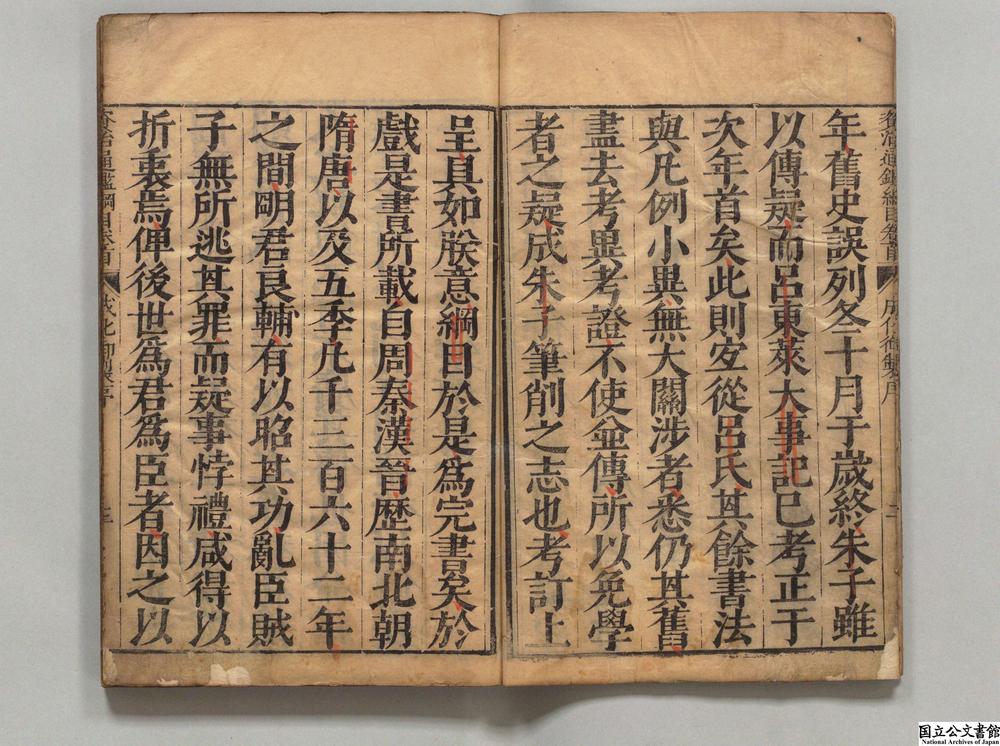 年舊史誤列冬十月于歲終朱子雖
以傳疑而呂東萊大事記已考正于
次年首矣此則宜從呂氏其餘書法
與凡例小異無大關涉者悉仍其舊
盡去考異考證不使並傳所以免學
者之疑成朱子筆削之志也考訂上
呈具如朕意綱目於是爲完書矣於
戲是書所載自周秦漢晉歷南北朝
隋唐以及五季凡千三百六十二年
之間明君良輔有以昭其功亂臣賊
子無所逃其罪而疑事悖禮咸得以
折衷焉俾後世爲君爲臣者因之以
国立公文書館
National Archives of Japan